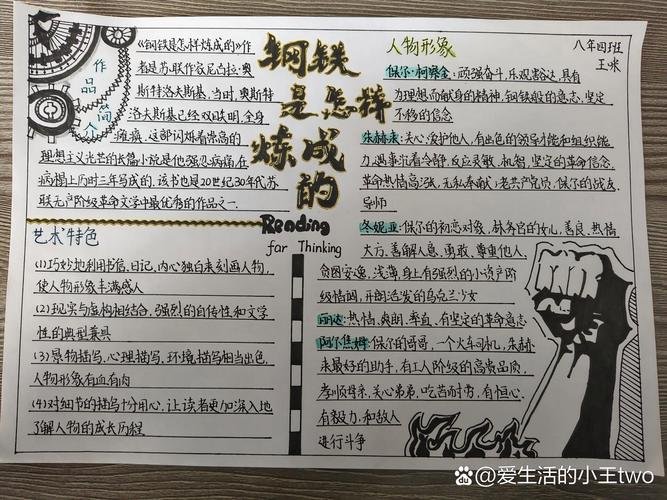 作品简介
《钢铁是怎样炼成的》作
者是苏联作家尼古拉·奥
斯特洛夫斯基,当时,奥斯特
洛夫斯基已经双目失明,全身
瘫痪,这部闪烁着崇高的
理想主义光芒的长篇小说是他强忍病痛在
病榻上历时三年写成的,该书也是20世纪30年代苏
联无产阶级革命文学中最优秀的作品之一.
钢铁
是怎样
炼成
的
Reading
for Thinking
艺术特色
(1)巧妙地利用书信、日记、内心独白来刻画人物,
使人物形象丰满感人
(2)现实与虚构相结合,强烈的自传性和文学
性的典型兼具
(3)景物描写、心理描写、环境描写相当出色,
人物形象有血有肉
(4)对细节的描写十分用心,让读者更加深入地
了解人物的成长历程
人物形象
八年四班
王咪
保尔·柯察金:顽强奋斗,乐观豁达,具有
为理想而献身的精神,钢铁般的意志,坚定
不移的信念
朱赫来:关心,爱护他人,有出色的领导才能和组织能
力,遇事沉着冷静,反应灵敏,机智,坚定的革命信念,
革命热情高涨,无私奉献;老共产党员,保尔的战友,
导师
冬妮亚:保尔的初恋对象,林务官的女儿,善良、热情
大方,善解人意,勇敢、尊重他人,
贪图安逸,浅薄,身上有强烈的小资产阶
级情调,开朗活发的乌克兰少女
丽达:热情,爽朗,率直,有坚定的革命意志
阿尔焦姆:保尔的哥哥,一个火车司机,朱赫
来最好的助手,有工人阶级的高贵品质,
孝顺母亲,关心弟弟,吃苦而劳,有恒心,
有毅力,和敌人
进行斗争
@爱生活的小王two